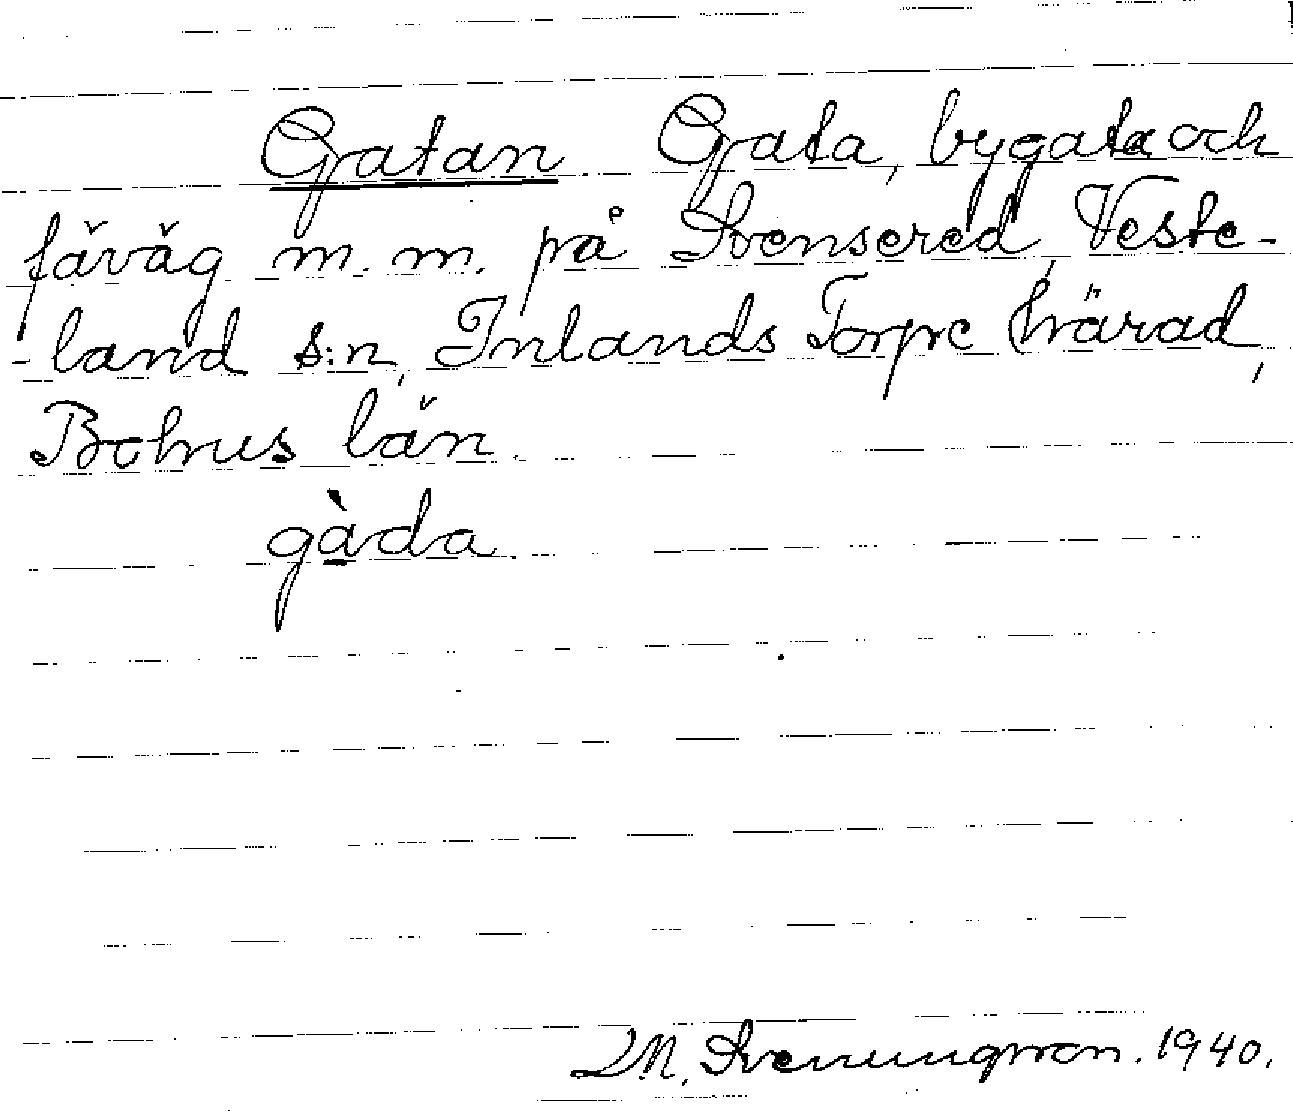 Gatan Gata, bygata och
fäväg m. m. på Svensered, Veste-
-land s:n, Inlands Torpe härad,
Bohus län.
gàda.
M. Svenungsson. 1940.